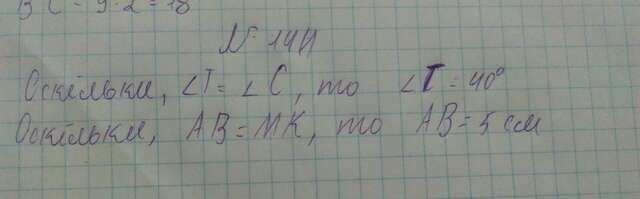 ВС = 9·2 = 18
№ 144
Оскільки, ∠T = ∠C, то ∠T = 40°
Оскільки, AB = MK, то AB = 5 см